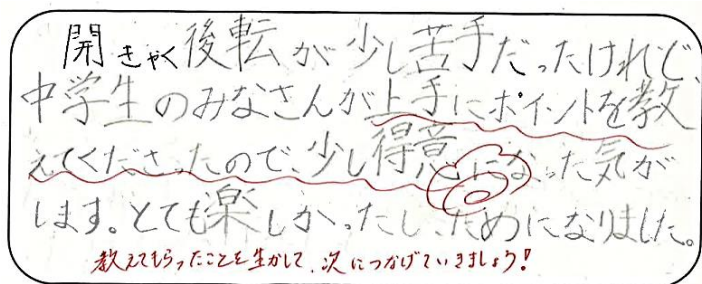 開きゃく後転が少し苦手だったけれど、
中学生のみなさんが上手にポイントを教
えてくださったので、少し得意になった気が
します。とても楽しかったし、ためになりました。
教えてもらったことを生かして、次につなげていきましょう!